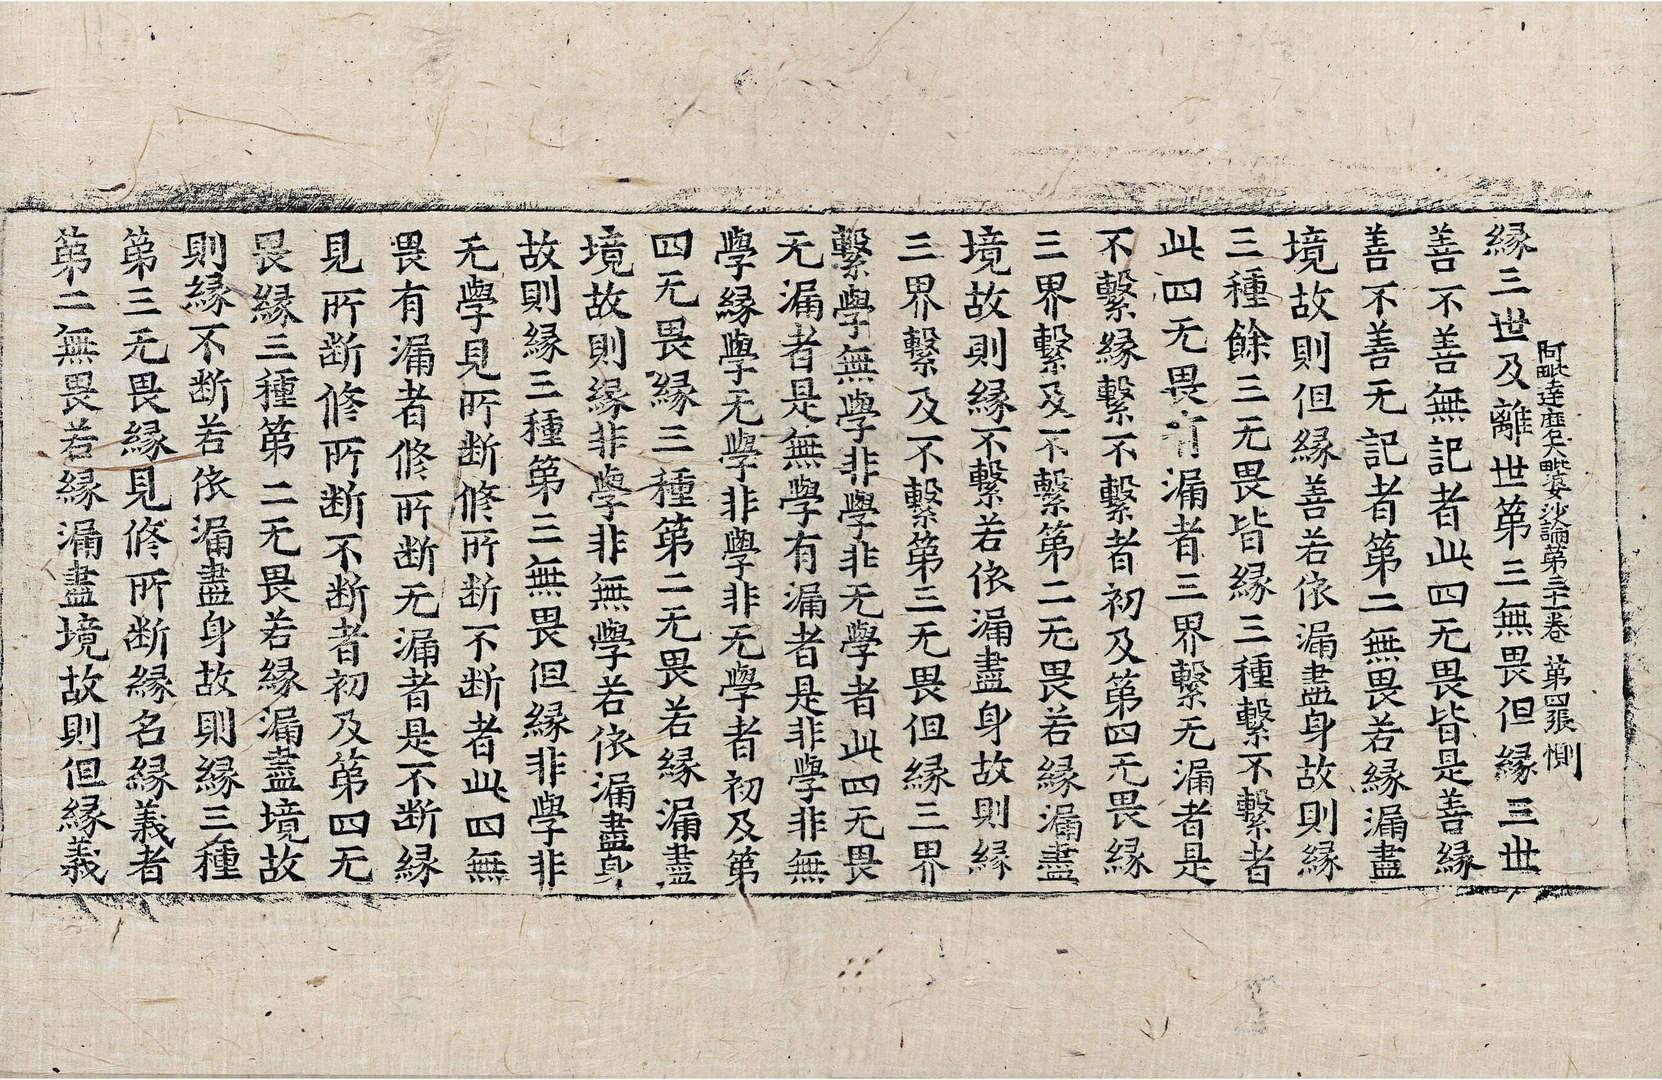 阿毗達磨大毗婆沙論第三十一卷 第四張 惻
緣三世及離世第三無畏但緣三世
善不善無記者此四无畏皆是善緣
善不善无記者第二無畏若緣漏盡
境故則但緣善若依漏盡身故則緣
三種餘三无畏皆緣三種繫不繫者
此四无畏有漏者三界繫无漏者是
不繫緣繫不繫者初及第四无畏緣
三界繫及不繫第二无畏若緣漏盡
境故則緣不繫若依漏盡身故則緣
三界繫及不繫第三无畏但緣三界
繫學無學非學非无學者此四无畏
无漏者是無學有漏者是非學非無
學緣學无學非學非无學者初及第
四无畏緣三種第二无畏若緣漏盡
境故則緣非學非無學若依漏盡身
故則緣三種第三無畏但緣非學非
无學見所断修所断不断者此四無
畏有漏者修所断无漏者是不断緣
見所断修所断不断者初及第四无
畏緣三種第二无畏若緣漏盡境故
則緣不断若依漏盡身故則緣三種
第三无畏緣見修所断緣名緣義者
第二無畏若緣漏盡境故則但緣義